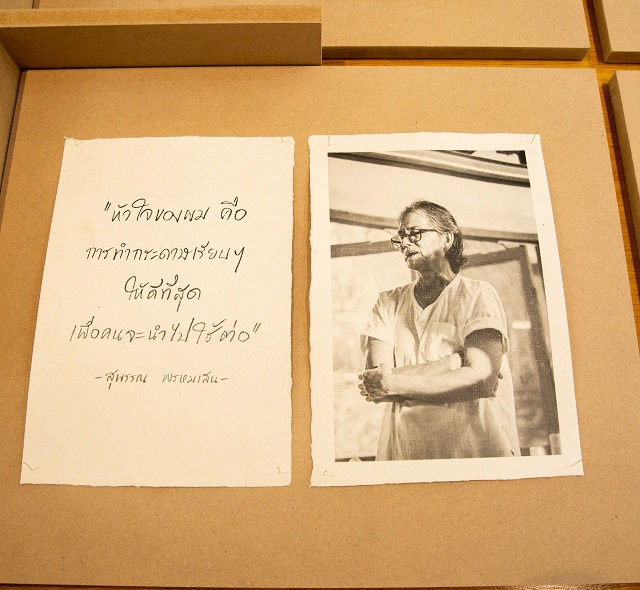 "หัวใจของผม คือ
การทำกระดาษเรียบๆ
ให้ดีที่สุด
เพื่อคนจะนำไปใช้ต่อ"
-สุพรรณ พรหมเสน-